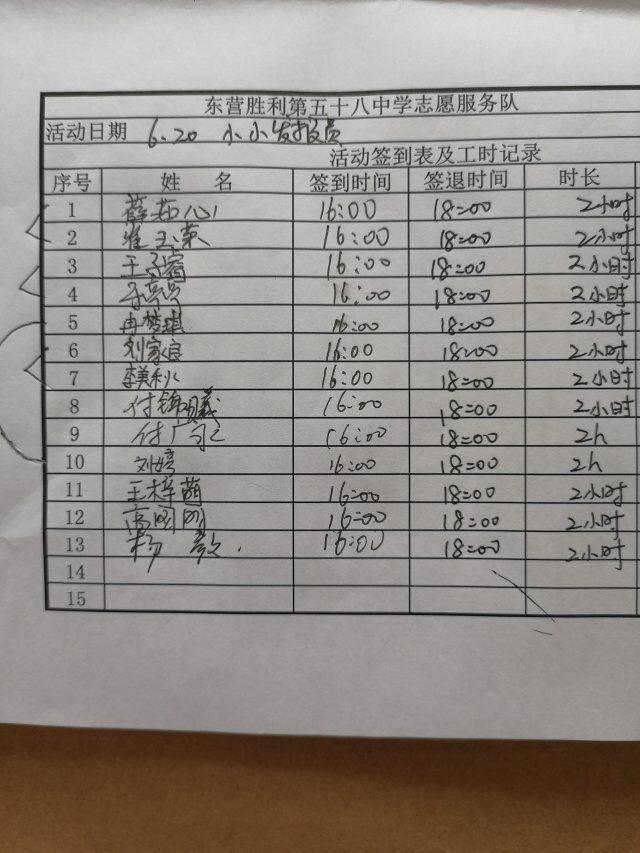 东营胜利第五十八中学志愿服务队
活动日期 6.20 小小发报员
活动签到表及工时记录
序号 姓 名 签到时间 签退时间 时长
1 薛茹心 16:00 18:00 2小时
2 崔玉荣 16:00 18:00 2小时
3 王子睿 16:00 18:00 2小时
4 16:00 18:00 2小时
5 冉梦琪 16:00 18:00 2小时
6 刘家良 16:00 18:00 2小时
7 李美秋 16:00 18:00 2小时
8 付锦曦 16:00 18:00 2小时
9 付广 16:00 18:00 2h
10 刘婷 16:00 18:00 2h
11 王梓萌 16:00 18:00 2小时
12 高 16:00 18:00 2小时
13 杨 16:00 18:00 2小时
14
15